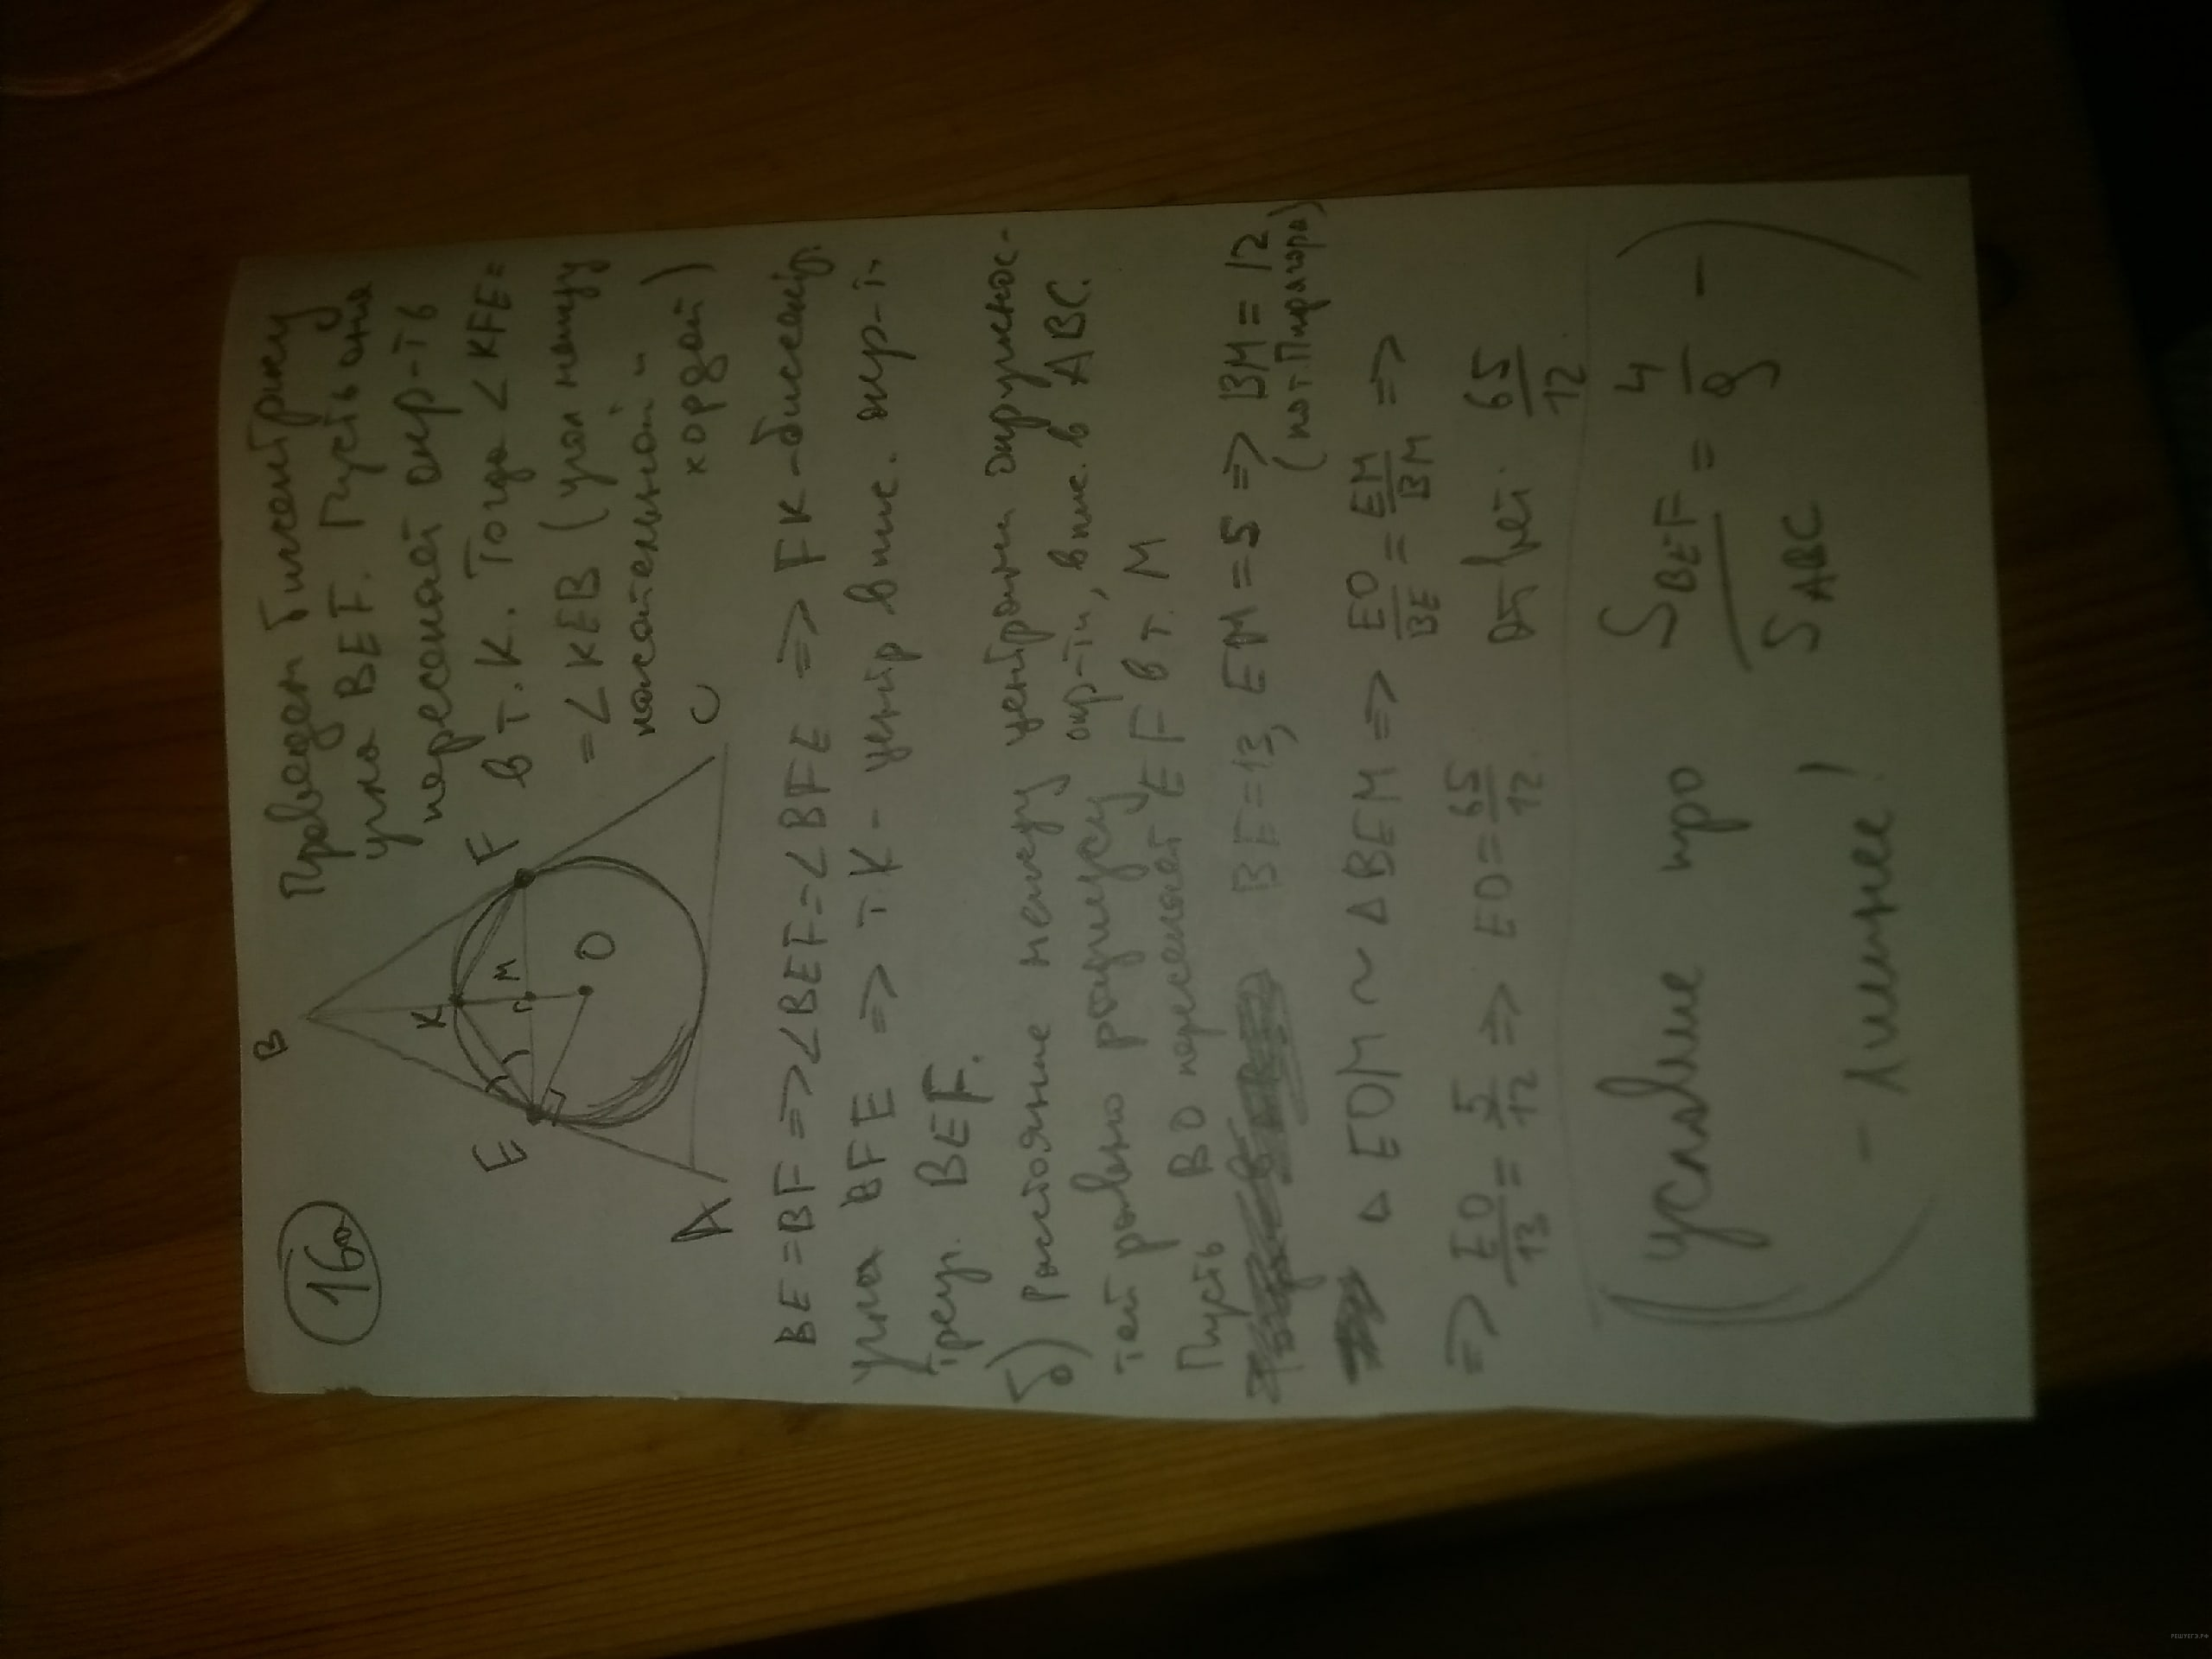 16а
Проведем биссектрису
угла BEF. Пусть она
пересекает окр-ть
в т. K. Тогда ∠KFE=
=∠KEB (угол между
касательной и
хордой)
B
K
E
F
M
O
A
C
BE=BF => ∠BEF=∠BFE => FK-биссектр.
угла BFE => т K - центр впис. окр-ти
треуг. BEF.
б) Расстояние между центрами окружнос-
тей равно радиусу окр-ти, впис. в ABC.
Пусть BO пересекает EF в т. M
BE=13, EM=5 => BM=12
(по т. Пифагора)
△EOM ~ △BEM => EO/BE = EM/BM =>
=> EO/13 = 5/12 => EO = 65/12 Ответ: 65/12.
(условие про S BEF / S ABC = 4/9 -
- лишнее!)
РЕШУЕГЭ.РФ